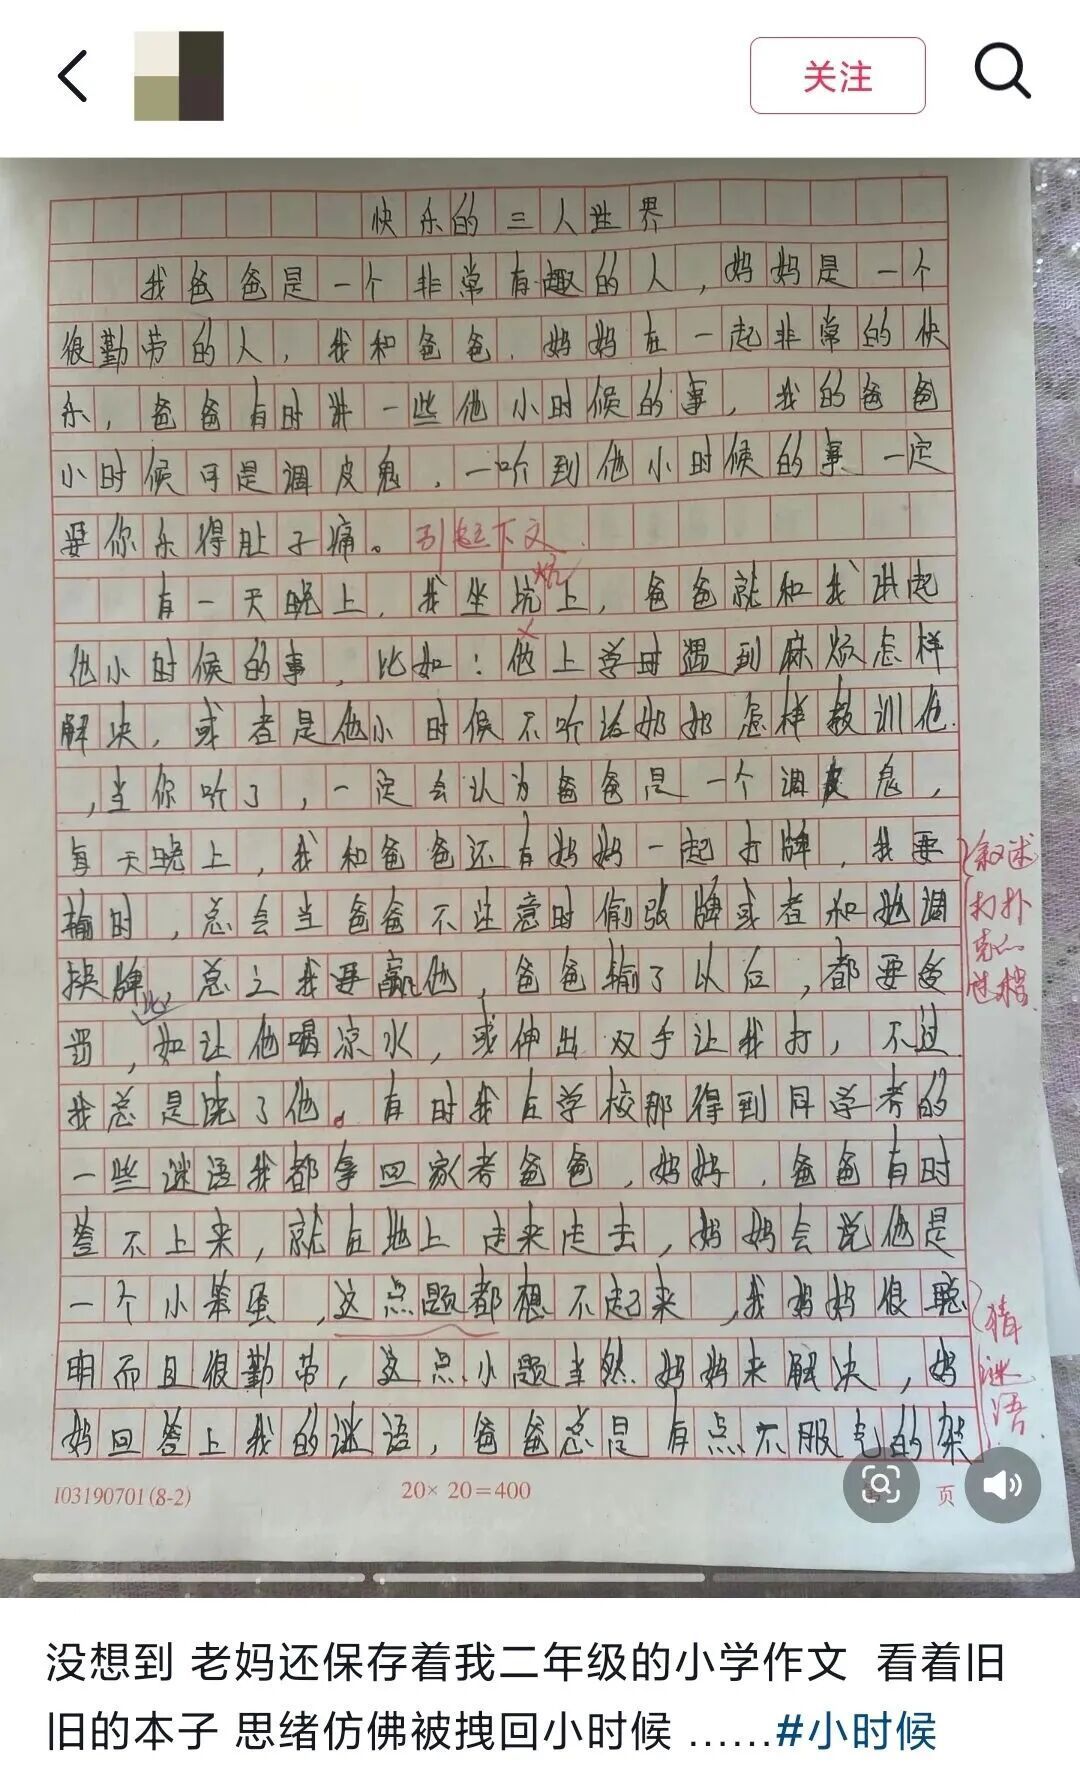 关注
快乐的三人世界
我爸爸是一个非常有趣的人,妈妈是一个
很勤劳的人,我和爸爸、妈妈在一起非常的快
乐,爸爸有时讲一些他小时候的事,我的爸爸
小时候可是调皮鬼,一听到他小时候的事一定
要你乐得肚子痛。引起下文
炕
有一天晚上,我坐坑上,爸爸就和我讲起
他小时候的事,比如:他上学时遇到麻烦怎样
解决,或者是他小时候不听话奶奶怎样教训他
,当你听了,一定会认为爸爸是一个调皮鬼,
每天晚上,我和爸爸还有妈妈一起打牌,我要
输时,总会当爸爸不注意时偷张牌或者和她调
换牌,总之我要赢他,爸爸输了以后,都要受
叙述
打扑
克的
过程
比
罚,如让他喝凉水,或伸出双手让我打,不过
我总是饶了他。有时我在学校那得到同学考的
一些谜语我都拿回家考爸爸,妈妈,爸爸有时
答不上来,就在地上走来走去,妈妈会说他是
一个小笨蛋,这点题都想不起来,我妈妈很聪
明而且很勤劳,这点小题当然妈妈来解决,妈
妈回答上我的谜语,爸爸总是有点不服气的架
猜
谜
语
103190701(8-2)
20×20=400
页
没想到 老妈还保存着我二年级的小学作文 看着旧
旧的本子 思绪仿佛被拽回小时候 ......#小时候